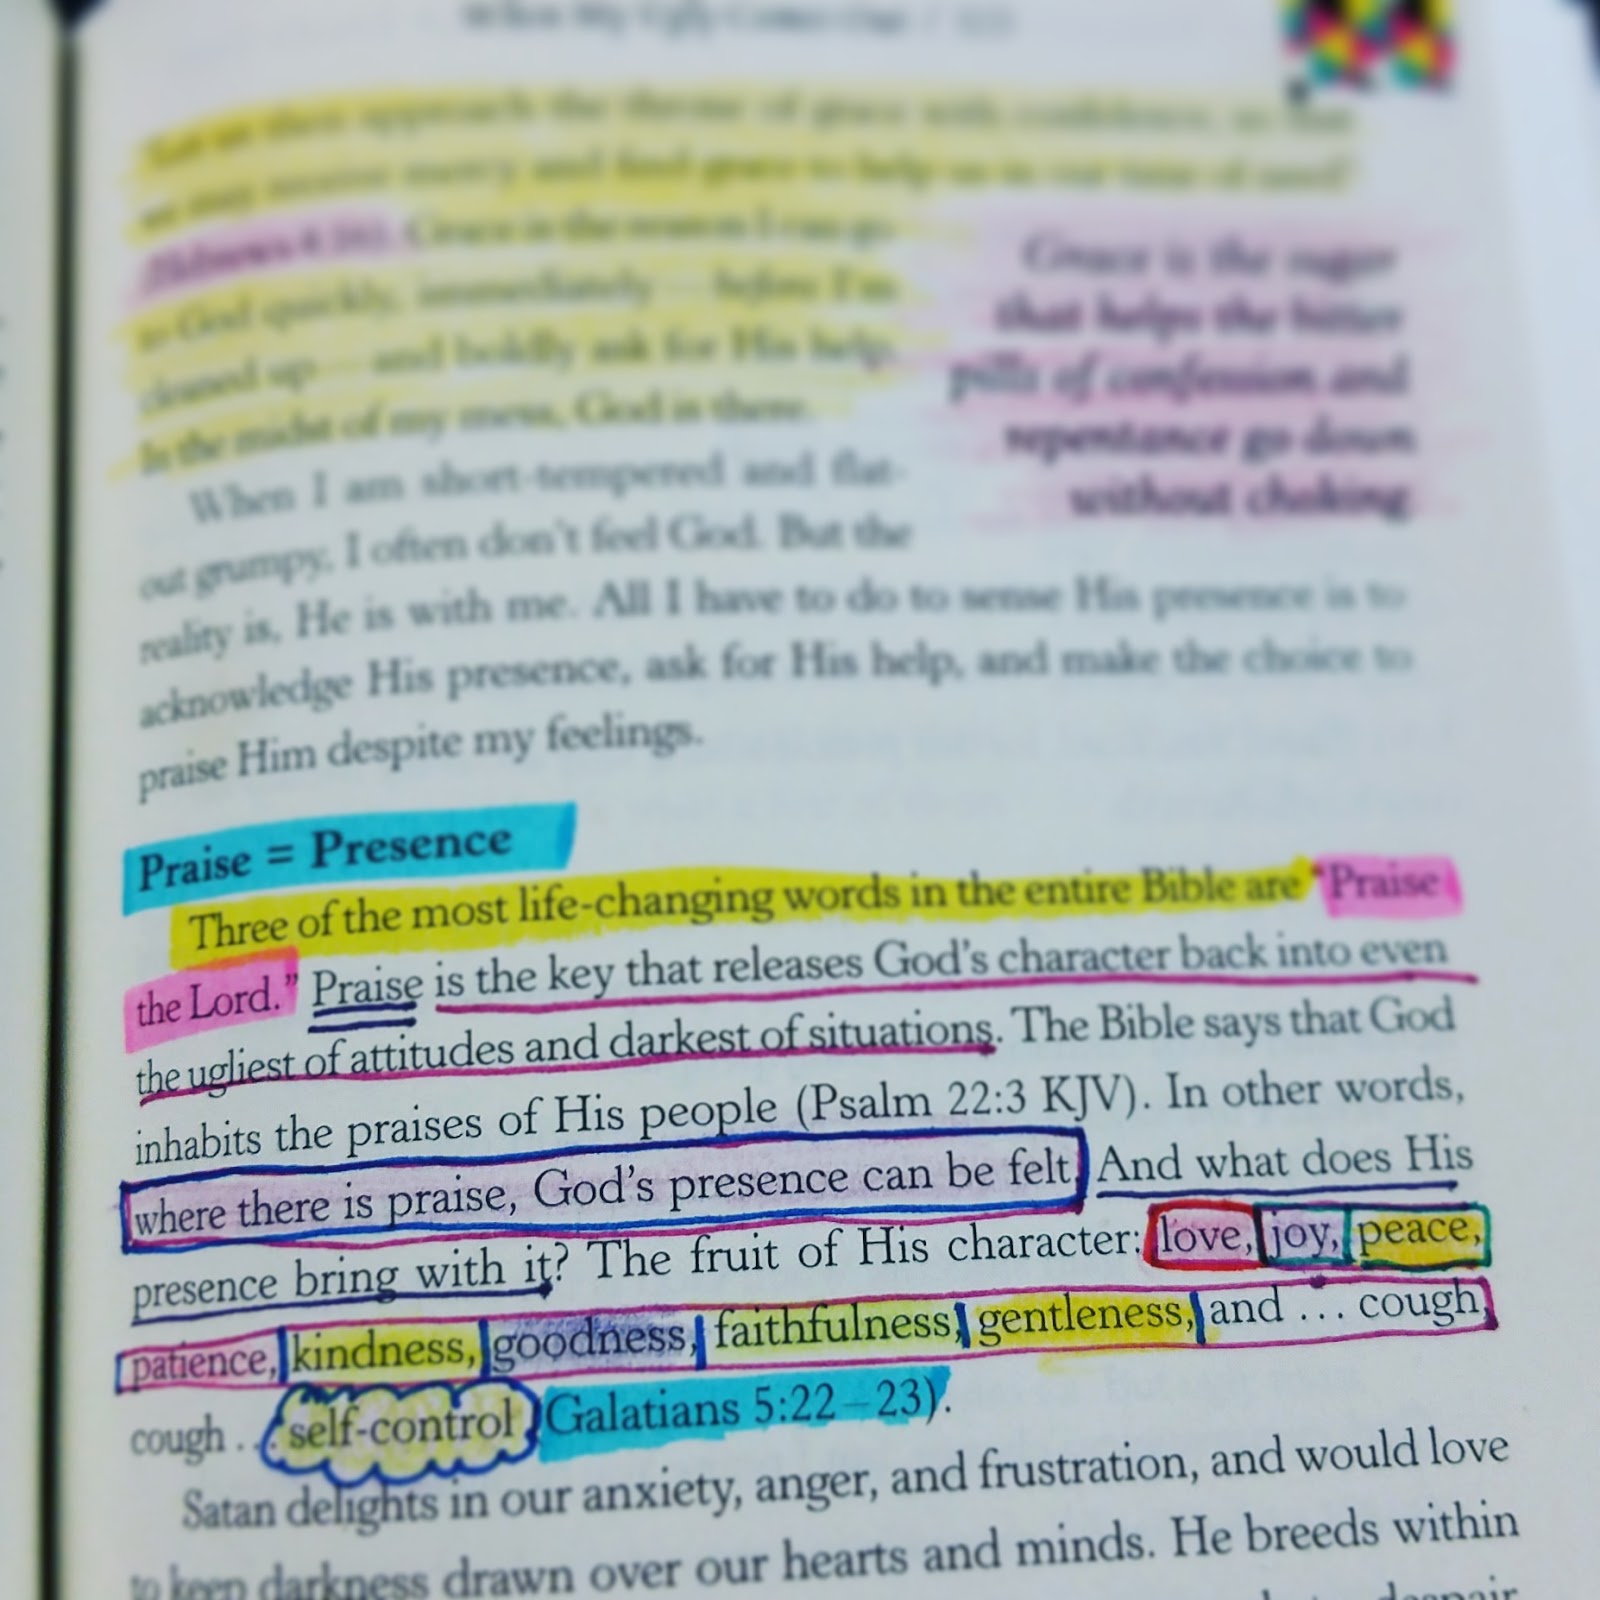 When My Ugly Comes Out /
Let us then approach the throne of grace with confidence, so that
we may receive mercy and find grace to help us in our time of need"
(Hebrews 4:16). Grace is the reason I can go
to God quickly, immediately — before I'm
cleaned up — and boldly ask for His help.
In the midst of my mess, God is there.
Grace is the sugar
that helps the bitter
pills of confession and
repentance go down
without choking
When I am short-tempered and flat-
out grumpy, I often don't feel God. But the
reality is, He is with me. All I have to do to sense His presence is to
acknowledge His presence, ask for His help, and make the choice to
praise Him despite my feelings.
Praise = Presence
Three of the most life-changing words in the entire Bible are "Praise
the Lord." Praise is the key that releases God's character back into even
the ugliest of attitudes and darkest of situations. The Bible says that God
inhabits the praises of His people (Psalm 22:3 KJV). In other words,
where there is praise, God's presence can be felt. And what does His
presence bring with it? The fruit of His character: love, joy, peace,
patience, kindness, goodness, faithfulness, gentleness, and ... cough,
cough ... self-control (Galatians 5:22–23).
Satan delights in our anxiety, anger, and frustration, and would love
to keep darkness drawn over our hearts and minds. He breeds within
despair